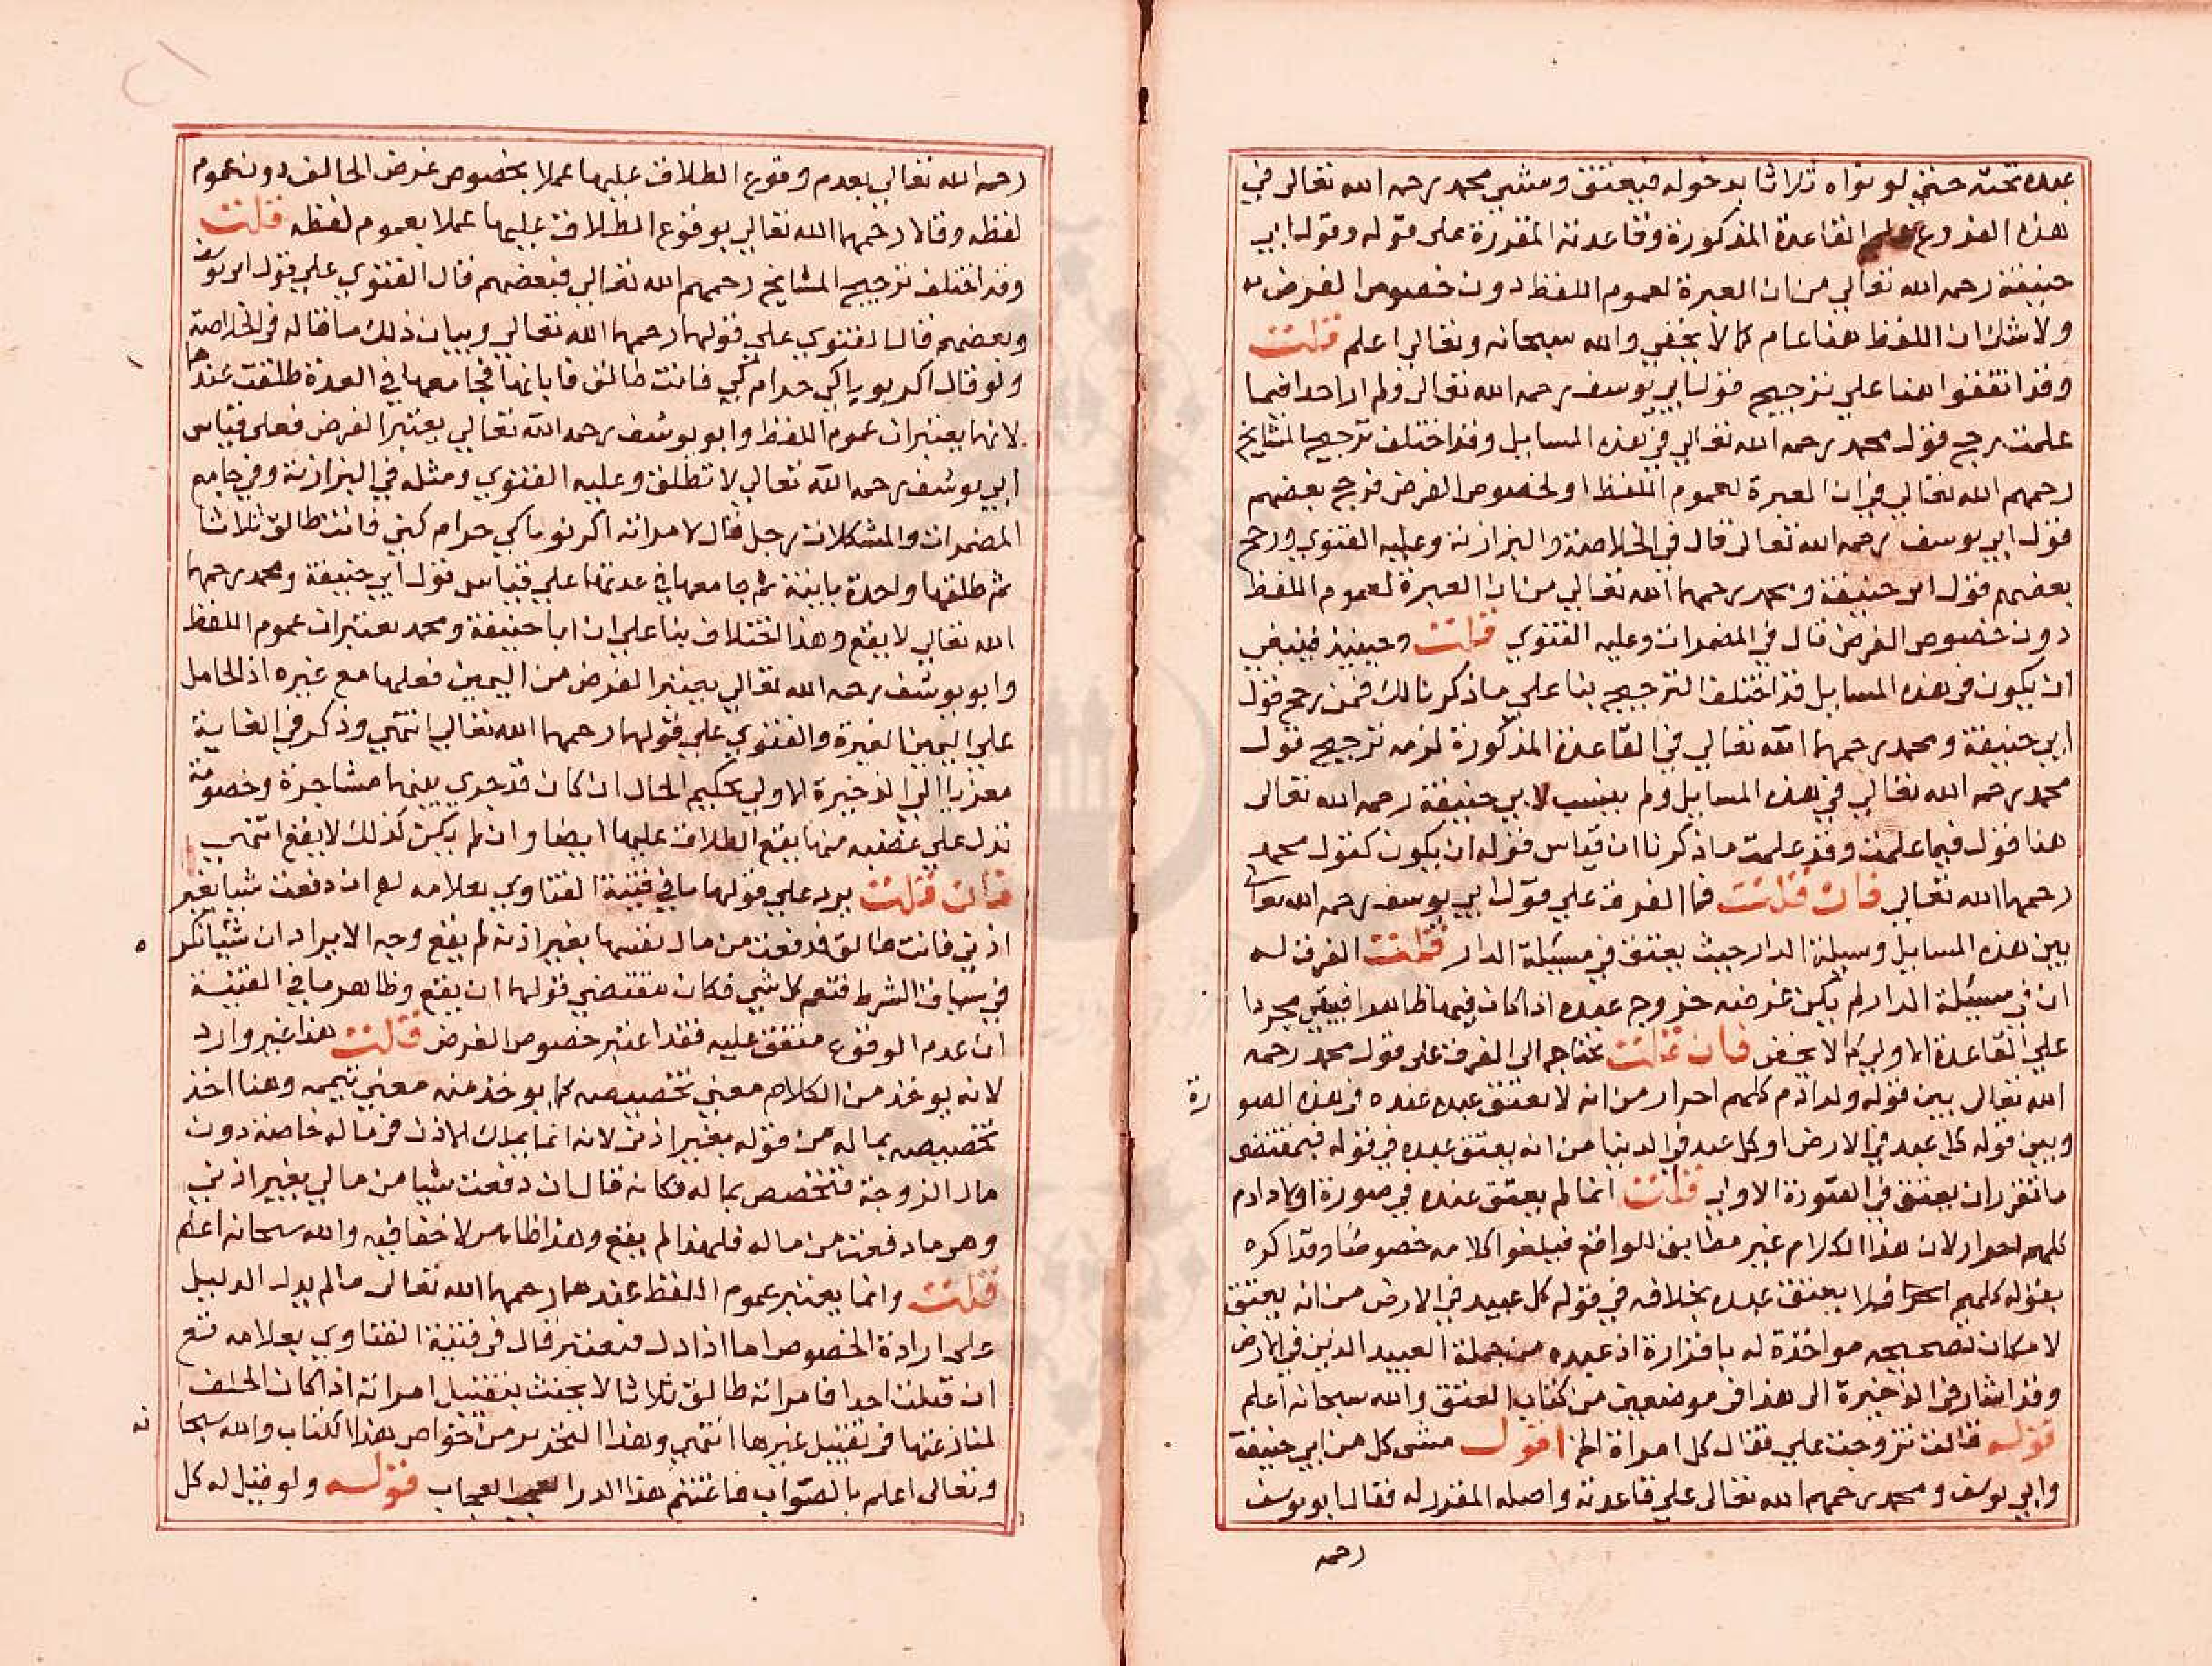 عبده تحته حتى لو نواه ثلاثا بدخوله فيعتق ومشى محمد رحمه الله تعالى في
هذه الفروع على القاعدة المذكورة وقاعدته المقررة على قوله وقول ابي
حنيفة رحمه الله تعالى من ان العبرة لعموم اللفظ دون خصوص الغرض
ولا شك ان اللفظ هنا عام كما لا يخفى والله سبحانه وتعالى اعلم قلت
وقد اتفقوا هنا على ترجيح قول ابي يوسف رحمه الله تعالى ولم ار احدا فيما
علمت رجح قول محمد رحمه الله تعالى في هذه المسايل وقد اختلف ترجيح المشايخ
رحمهم الله تعالى في ان العبرة لعموم اللفظ او لخصوص الغرض فرجح بعضهم
قول ابي يوسف رحمه الله تعالى قال في الخلاصة والبزازية وعليه الفتوى ورجح
بعضهم قول ابي حنيفة ومحمد رحمهما الله تعالى من ان العبرة لعموم اللفظ
دون خصوص الغرض قال في المضمرات وعليه الفتوى قلت وحينيذ فينبغي
ان يكون في هذه المسايل قد اختلف الترجيح بنا على ما ذكرنا لك فمن رجح قول
ابي حنيفة ومحمد رحمهما الله تعالى في القاعدة المذكورة لزمه ترجيح قول
محمد رحمه الله تعالى في هذه المسايل ولم ينسب لابي حنيفة رحمه الله تعالى
هنا قول فيما علمت وقد علمت ما ذكرنا ان قياس قوله ان يكون كقول محمد
رحمهما الله تعالى فان قلت فما الفرق على قول ابي يوسف رحمه الله تعالى
بين هذه المسايل ومسيلة الدار حيث يعتق في مسيلة الدار قلت الفرق له
ان في مسيلة الدار لم يكن غرضه خروج عبده اذا كان فيها ظاهرا فبقي مجردا
على القاعدة الاولى كما لا يخفى فان قلت نحتاج الى الفرق على قول محمد رحمه
الله تعالى بين قوله ولد ادم كلهم احرار من انه لا يعتق عبده عنده في هذه الصورة
وبين قوله كل عبد في الارض او كل عبد في الدنيا من انه يعتق عبده في قوله فبمقتضى
ما تقرر ان يعتق في الصورة الاولى قلت انما لم يعتق عنده في صورة اولاد ادم
كلهم احرار لان هذا الكلام غير مطابق للواقع فيلغوا كلامه خصوصا وقد اكده
بقوله كلهم فلا يعتق عبده بخلافه في قوله كل عبيد في الارض من انه يعتق
لامكان تصحيحه مواخذة له باقراره اذ عبده من جملة العبيد الذين في الارض
وقد اشار في الذخيرة الى هذا في موضعين من كتاب العتق والله سبحانه اعلم
قوله قالت تزوجت علي فقال كل امراة الخ اقول مشى كل من ابي حنيفة
وابي يوسف ومحمد رحمهم الله تعالى على قاعدته واصله المقرر له فقال ابو يوسف
رحمه
رحمه الله تعالى بعدم وقوع الطلاق عليها عملا بخصوص غرض الحالف دون عموم
لفظه وقالا رحمهما الله تعالى بوقوع الطلاق عليها عملا بعموم لفظه قلت
وقد اختلف ترجيح المشايخ رحمهم الله تعالى فبعضهم قال الفتوى على قول ابي يوسف
وبعضهم قال الفتوى على قولهما رحمهما الله تعالى وبيان ذلك ما قاله في الخلاصة
ولو قال اكر حرام كني فانت طالق فابانها فجامعها في العدة طلقت عندهما
لانهما يعتبران عموم اللفظ وابو يوسف رحمه الله تعالى يعتبر الغرض فعلى قياس
ابي يوسف رحمه الله تعالى لا تطلق وعليه الفتوى ومثله في البزازية وفي جامع
المضمرات والمشكلات رجل قال لامراته اكر تو باكي حرام كني فانت طالق ثلاثا
ثم طلقها واحدة باينة ثم جامعها في عدتها على قياس قول ابي حنيفة ومحمد رحمهما
الله تعالى لا يقع وهذا اختلاف بنا على ان ابا حنيفة ومحمد يعتبران عموم اللفظ
وابو يوسف رحمه الله تعالى يعتبر الغرض من اليمين فعلها مع غيره اذ الحامل
على اليمين الغيرة والفتوى على قولهما رحمهما الله تعالى انتهى وذكر في الغاية
معزيا الى الذخيرة الاولى تحكيم الحال ان كان قد جرى بينهما مشاجرة وخصومة
تدل على غضبه منها يقع الطلاق عليها ايضا وان لم يكن كذلك لا يقع انتهى
فان قلت يرد على قولهما ما في قنية الفتاوي بعلامه ان دفعت شيا بغير
اذني فانت طالق فدفعت من مال نفسها بغير اذنه لم يقع وجه الايراد ان شيئا نكرة
في سياق الشرط فتعم كل شي فكان مقتضى قولهما ان يقع وظاهر ما في القنية
ان عدم الوقوع متفق عليه فقد اعتبر خصوص الغرض قلت هذا غير وارد
لانه يوخذ من الكلام معنى تخصيصه كما يوخذ منه معنى تعميمه وهنا اخذ
تخصيصه بماله من قوله بغير اذني لانه انما يملك الاذن في ماله خاصة دون
مال الزوجة فتخصص بماله فكانه قال ان دفعت شيا من مالي بغير اذني
وهو ما دفعت من ماله فلهذا لم يقع وهذا ظاهر لا خفا فيه والله سبحانه اعلم
قلت وانما يعتبر عموم اللفظ عندهما رحمهما الله تعالى ما لم يدل الدليل
على ارادة الخصوص اما اذا دل فيعتبر قال في قنية الفتاوي بعلامه
ان قبلت احدا فامراته طالق ثلاثا لا يحنث بتقبيل امراته اذا كان الحلف
لمنازعتها في تقبيل غيرها انتهى وهذا التحرير من خواص هذا الكتاب والله سبحانه
وتعالى اعلم بالصواب فاغتنم هذا الدر العجاب قوله ولو قيل له كل